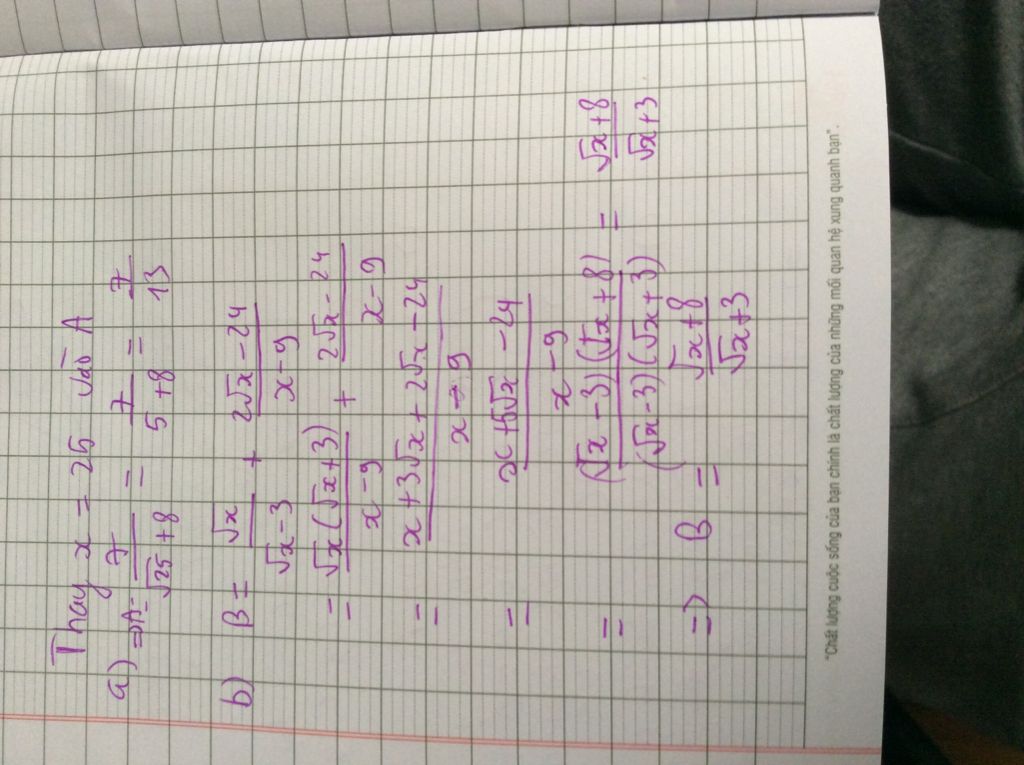 Thay x = 25 vào A
a) => A = 7/(√25 + 8) = 7/(5 + 8) = 7/13
b) B = √x/(√x - 3) + (2√x - 24)/(x - 9)
= √x(√x + 3)/(x - 9) + (2√x - 24)/(x - 9)
= (x + 3√x + 2√x - 24)/(x - 9)
= (x + 5√x - 24)/(x - 9)
= (√x - 3)(√x + 8)/(√x - 3)(√x + 3) = (√x + 8)/(√x + 3)
=> B = (√x + 8)/(√x + 3)
"Chất lượng cuộc sống của bạn chính là chất lượng của những mối quan hệ xung quanh bạn".